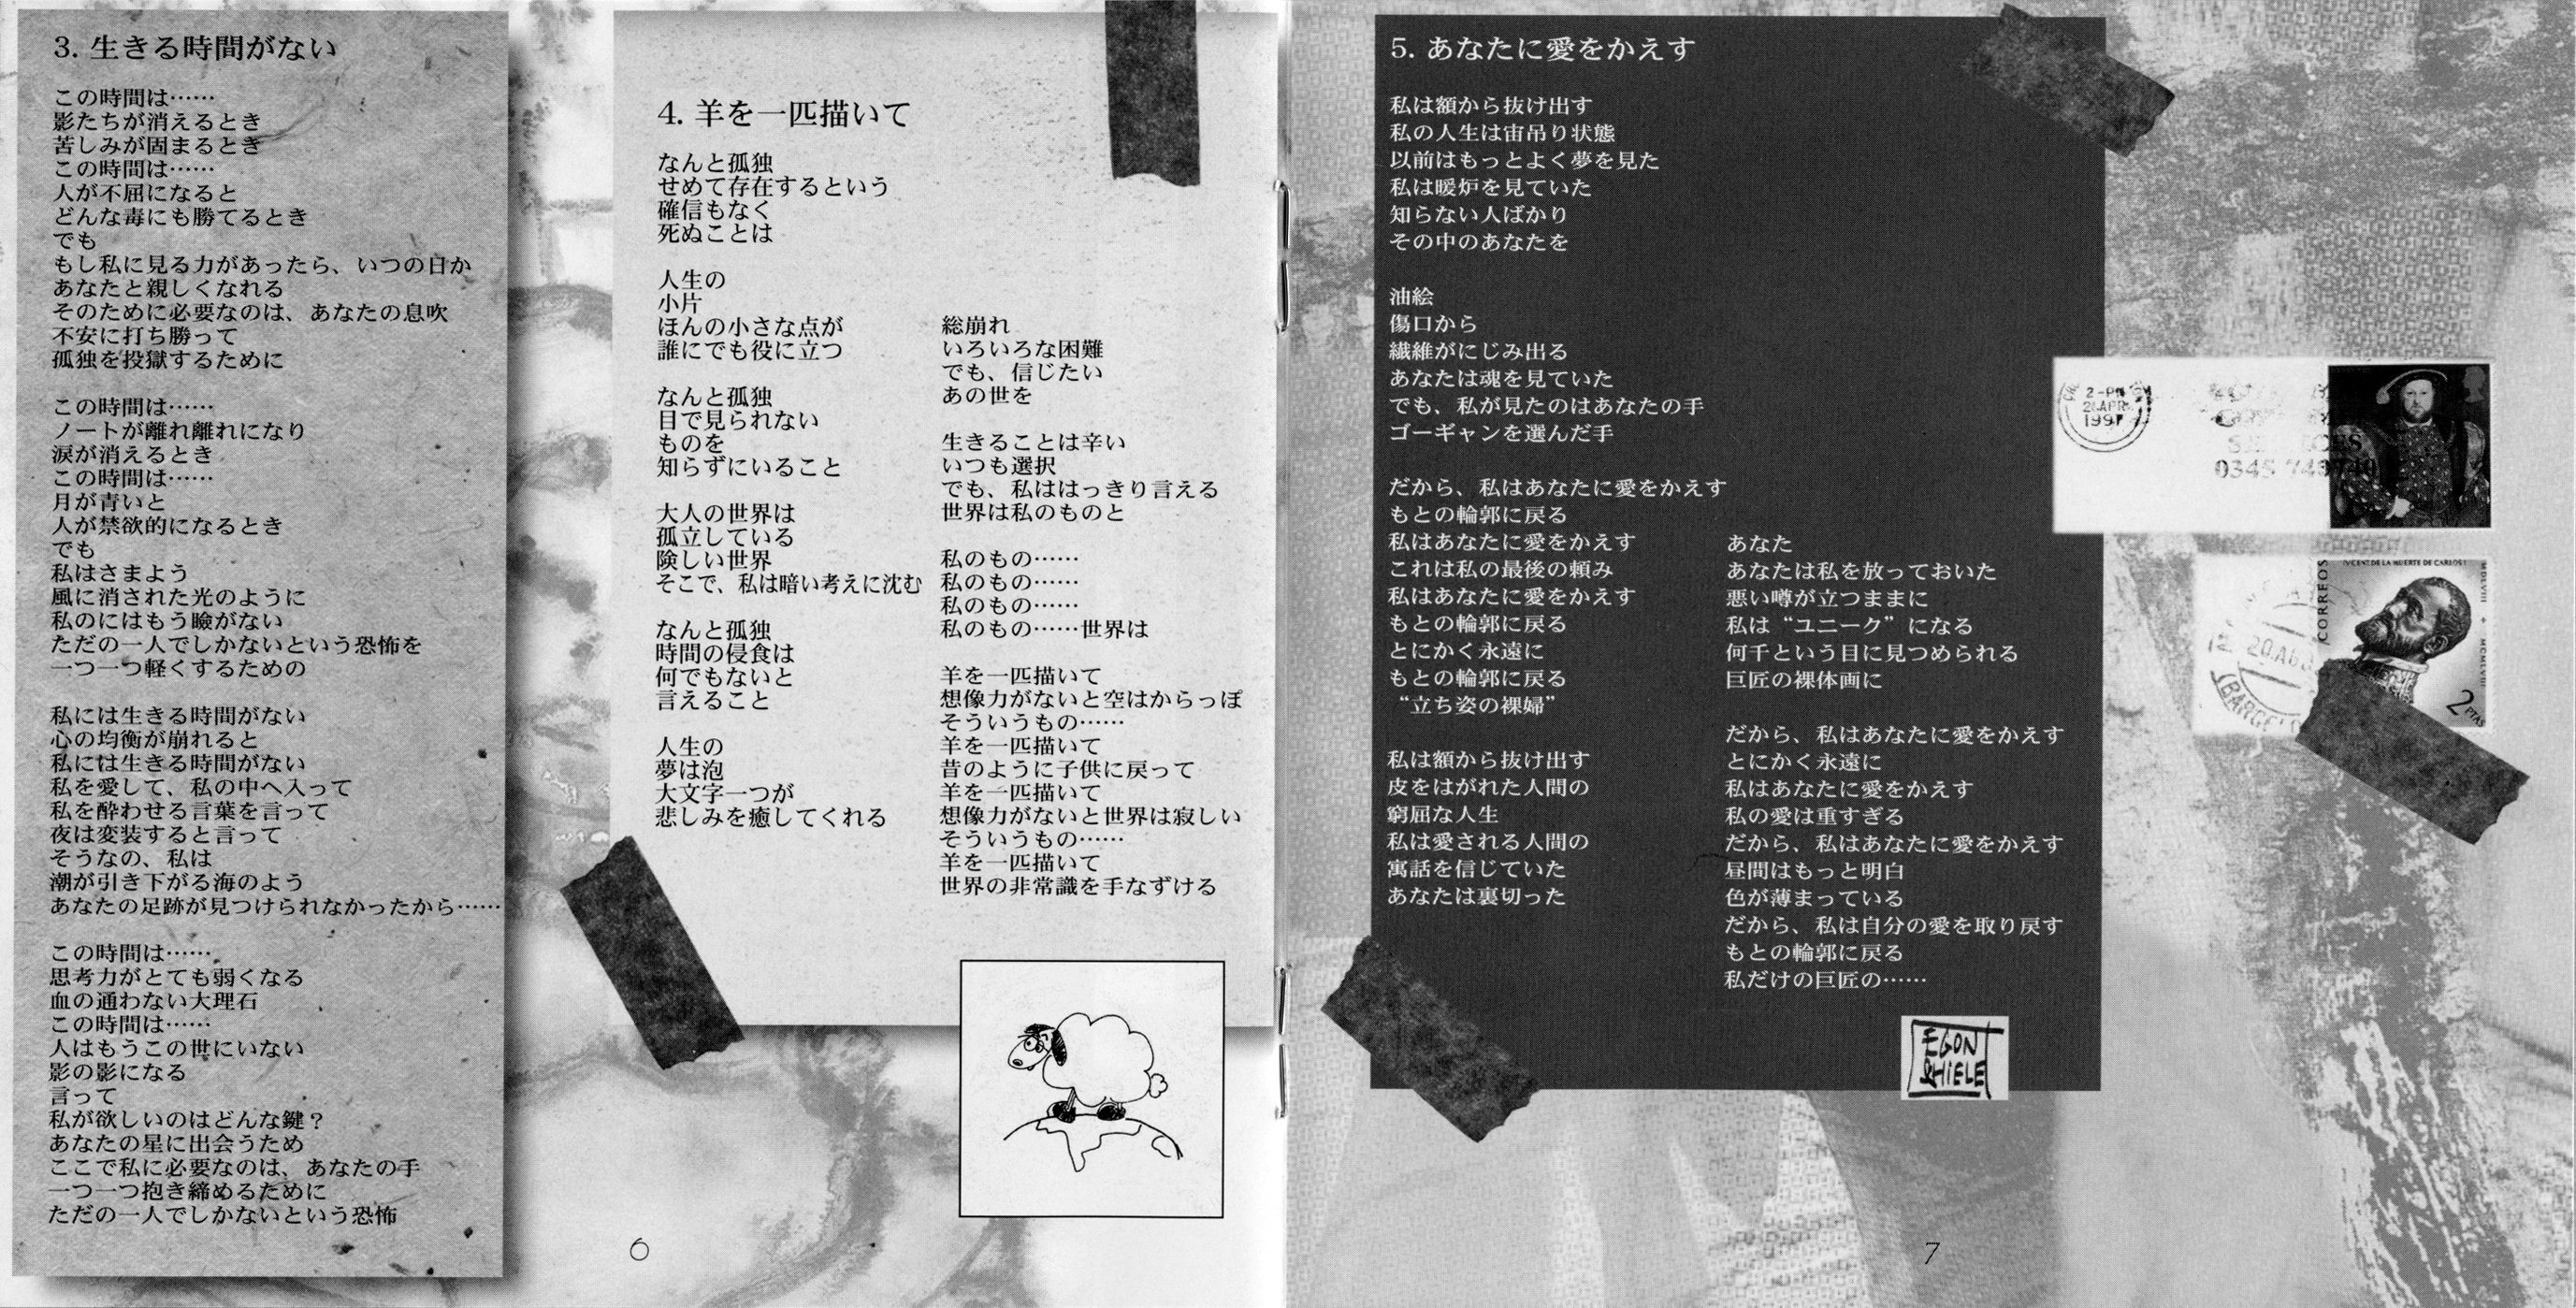 3. 生きる時間がない
この時間は……
影たちが消えるとき
苦しみが固まるとき
この時間は……
人が不屈になると
どんな毒にも勝てるとき
でも
もし私に見る力があったら、いつの日か
あなたと親しくなれる
そのために必要なのは、あなたの息吹
不安に打ち勝って
孤独を投獄するために
この時間は……
ノートが離れ離れになり
涙が消えるとき
この時間は……
月が青いと
人が禁欲的になるとき
でも
私はさまよう
風に消された光のように
私のにはもう瞼がない
ただの一人でしかないという恐怖を
一つ一つ軽くするための
私には生きる時間がない
心の均衡が崩れると
私には生きる時間がない
私を愛して、私の中へ入って
私を酔わせる言葉を言って
夜は変装すると言って
そうなの、私は
潮が引き下がる海のよう
あなたの足跡が見つけられなかったから……
この時間は……
思考力がとても弱くなる
血の通わない大理石
この時間は……
人はもうこの世にいない
影の影になる
言って
私が欲しいのはどんな鍵？
あなたの星に出会うため
ここで私に必要なのは、あなたの手
一つ一つ抱き締めるために
ただの一人でしかないという恐怖
4. 羊を一匹描いて
なんと孤独
せめて存在するという
確信もなく
死ぬことは
人生の
小片
ほんの小さな点が
誰にでも役に立つ
なんと孤独
目で見られない
ものを
知らずにいること
大人の世界は
孤立している
険しい世界
そこで、私は暗い考えに沈む
なんと孤独
時間の侵食は
何でもないと
言えること
人生の
夢は泡
大文字一つが
悲しみを癒してくれる
総崩れ
いろいろな困難
でも、信じたい
あの世を
生きることは辛い
いつも選択
でも、私ははっきり言える
世界は私のものと
私のもの……
私のもの……
私のもの……
私のもの……世界は
羊を一匹描いて
想像力がないと空はからっぽ
そういうもの……
羊を一匹描いて
昔のように子供に戻って
羊を一匹描いて
想像力がないと世界は寂しい
そういうもの……
羊を一匹描いて
世界の非常識を手なずける
6
5. あなたに愛をかえす
私は額から抜け出す
私の人生は宙吊り状態
以前はもっとよく夢を見た
私は暖炉を見ていた
知らない人ばかり
その中のあなたを
油絵
傷口から
繊維がにじみ出る
あなたは魂を見ていた
でも、私が見たのはあなたの手
ゴーギャンを選んだ手
だから、私はあなたに愛をかえす
もとの輪郭に戻る
私はあなたに愛をかえす
これは私の最後の頼み
私はあなたに愛をかえす
もとの輪郭に戻る
とにかく永遠に
もとの輪郭に戻る
“立ち姿の裸婦”
私は額から抜け出す
皮をはがれた人間の
窮屈な人生
私は愛される人間の
寓話を信じていた
あなたは裏切った
あなた
あなたは私を放っておいた
悪い噂が立つままに
私は“ユニーク”になる
何千という目に見つめられる
巨匠の裸体画に
だから、私はあなたに愛をかえす
とにかく永遠に
私はあなたに愛をかえす
私の愛は重すぎる
だから、私はあなたに愛をかえす
昼間はもっと明白
色が薄まっている
だから、私は自分の愛を取り戻す
もとの輪郭に戻る
私だけの巨匠の……
EGON
SCHIELE
7
2-PM
1997
0345
CORREOS
2 PTAS